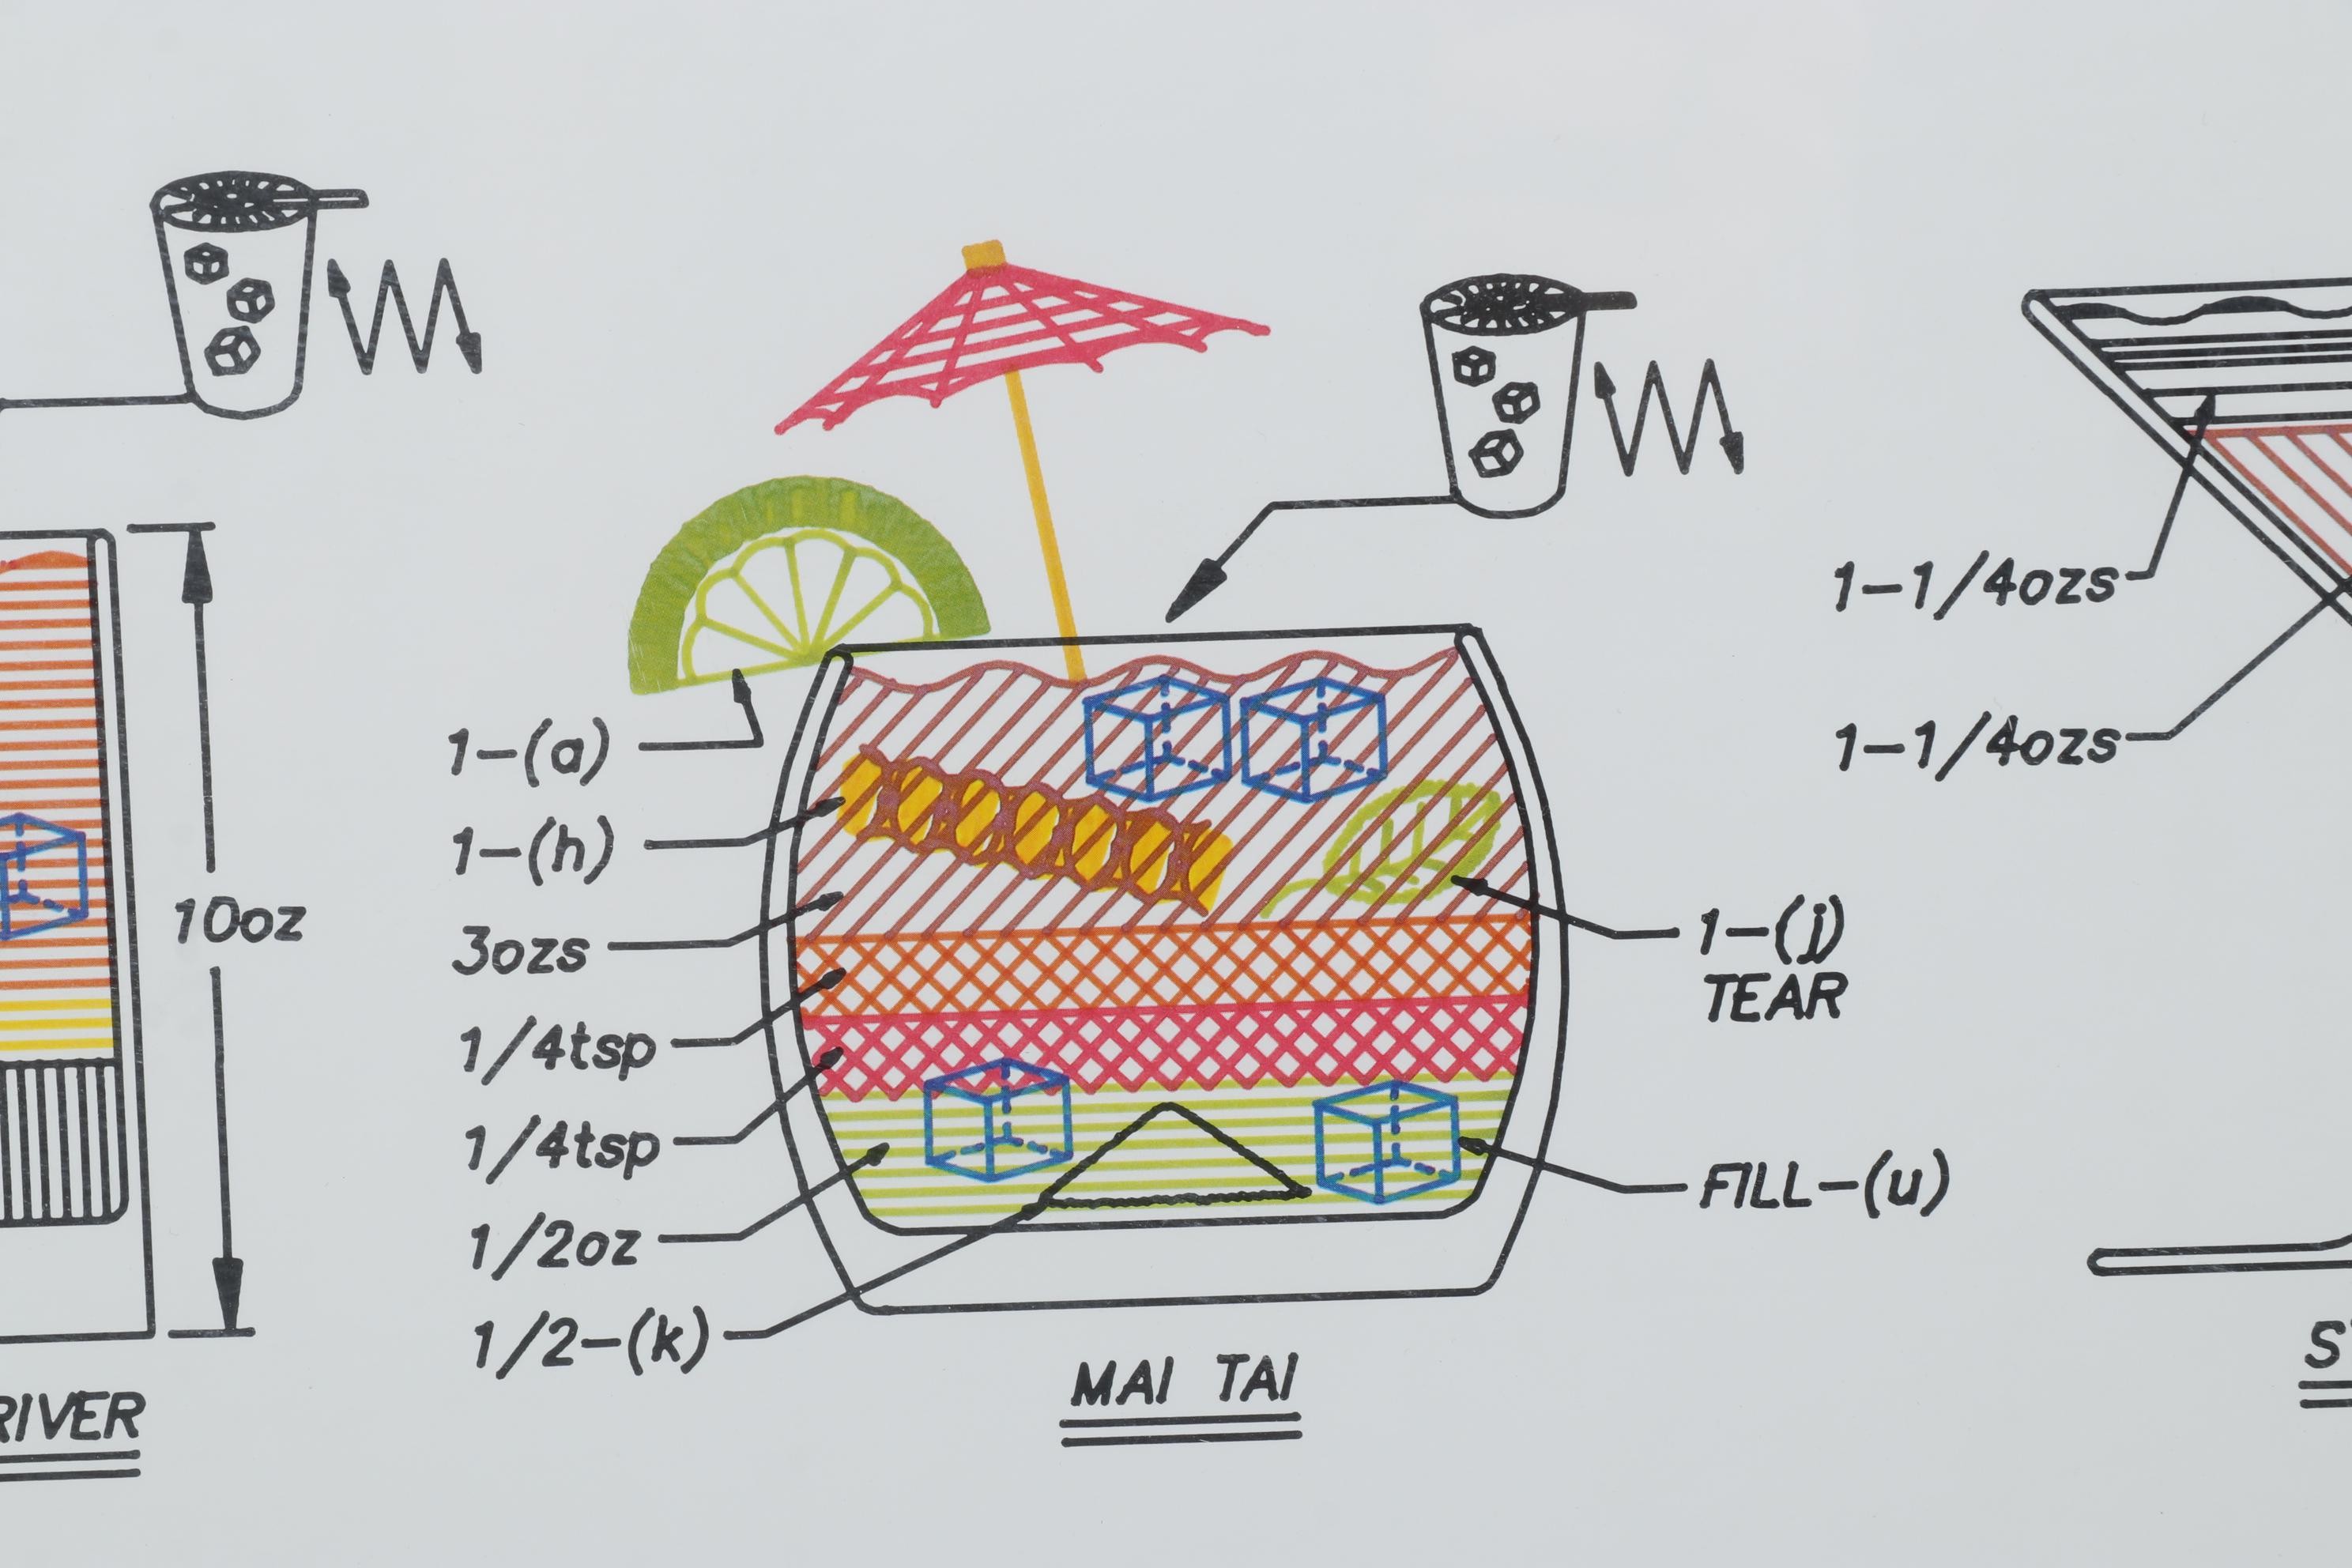 10oz
RIVER
1-(a)
1-(h)
3ozs
1/4tsp
1/4tsp
1/2oz
1/2-(k)
1-(j)
TEAR
FILL-(u)
MAI TAI
1-1/4ozs
1-1/4ozs
S